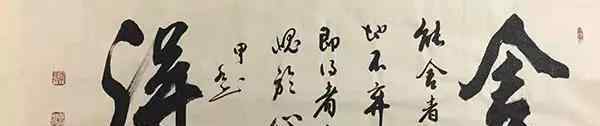 舍
能舍者
地不弃
即得者
愧於心
甲
得